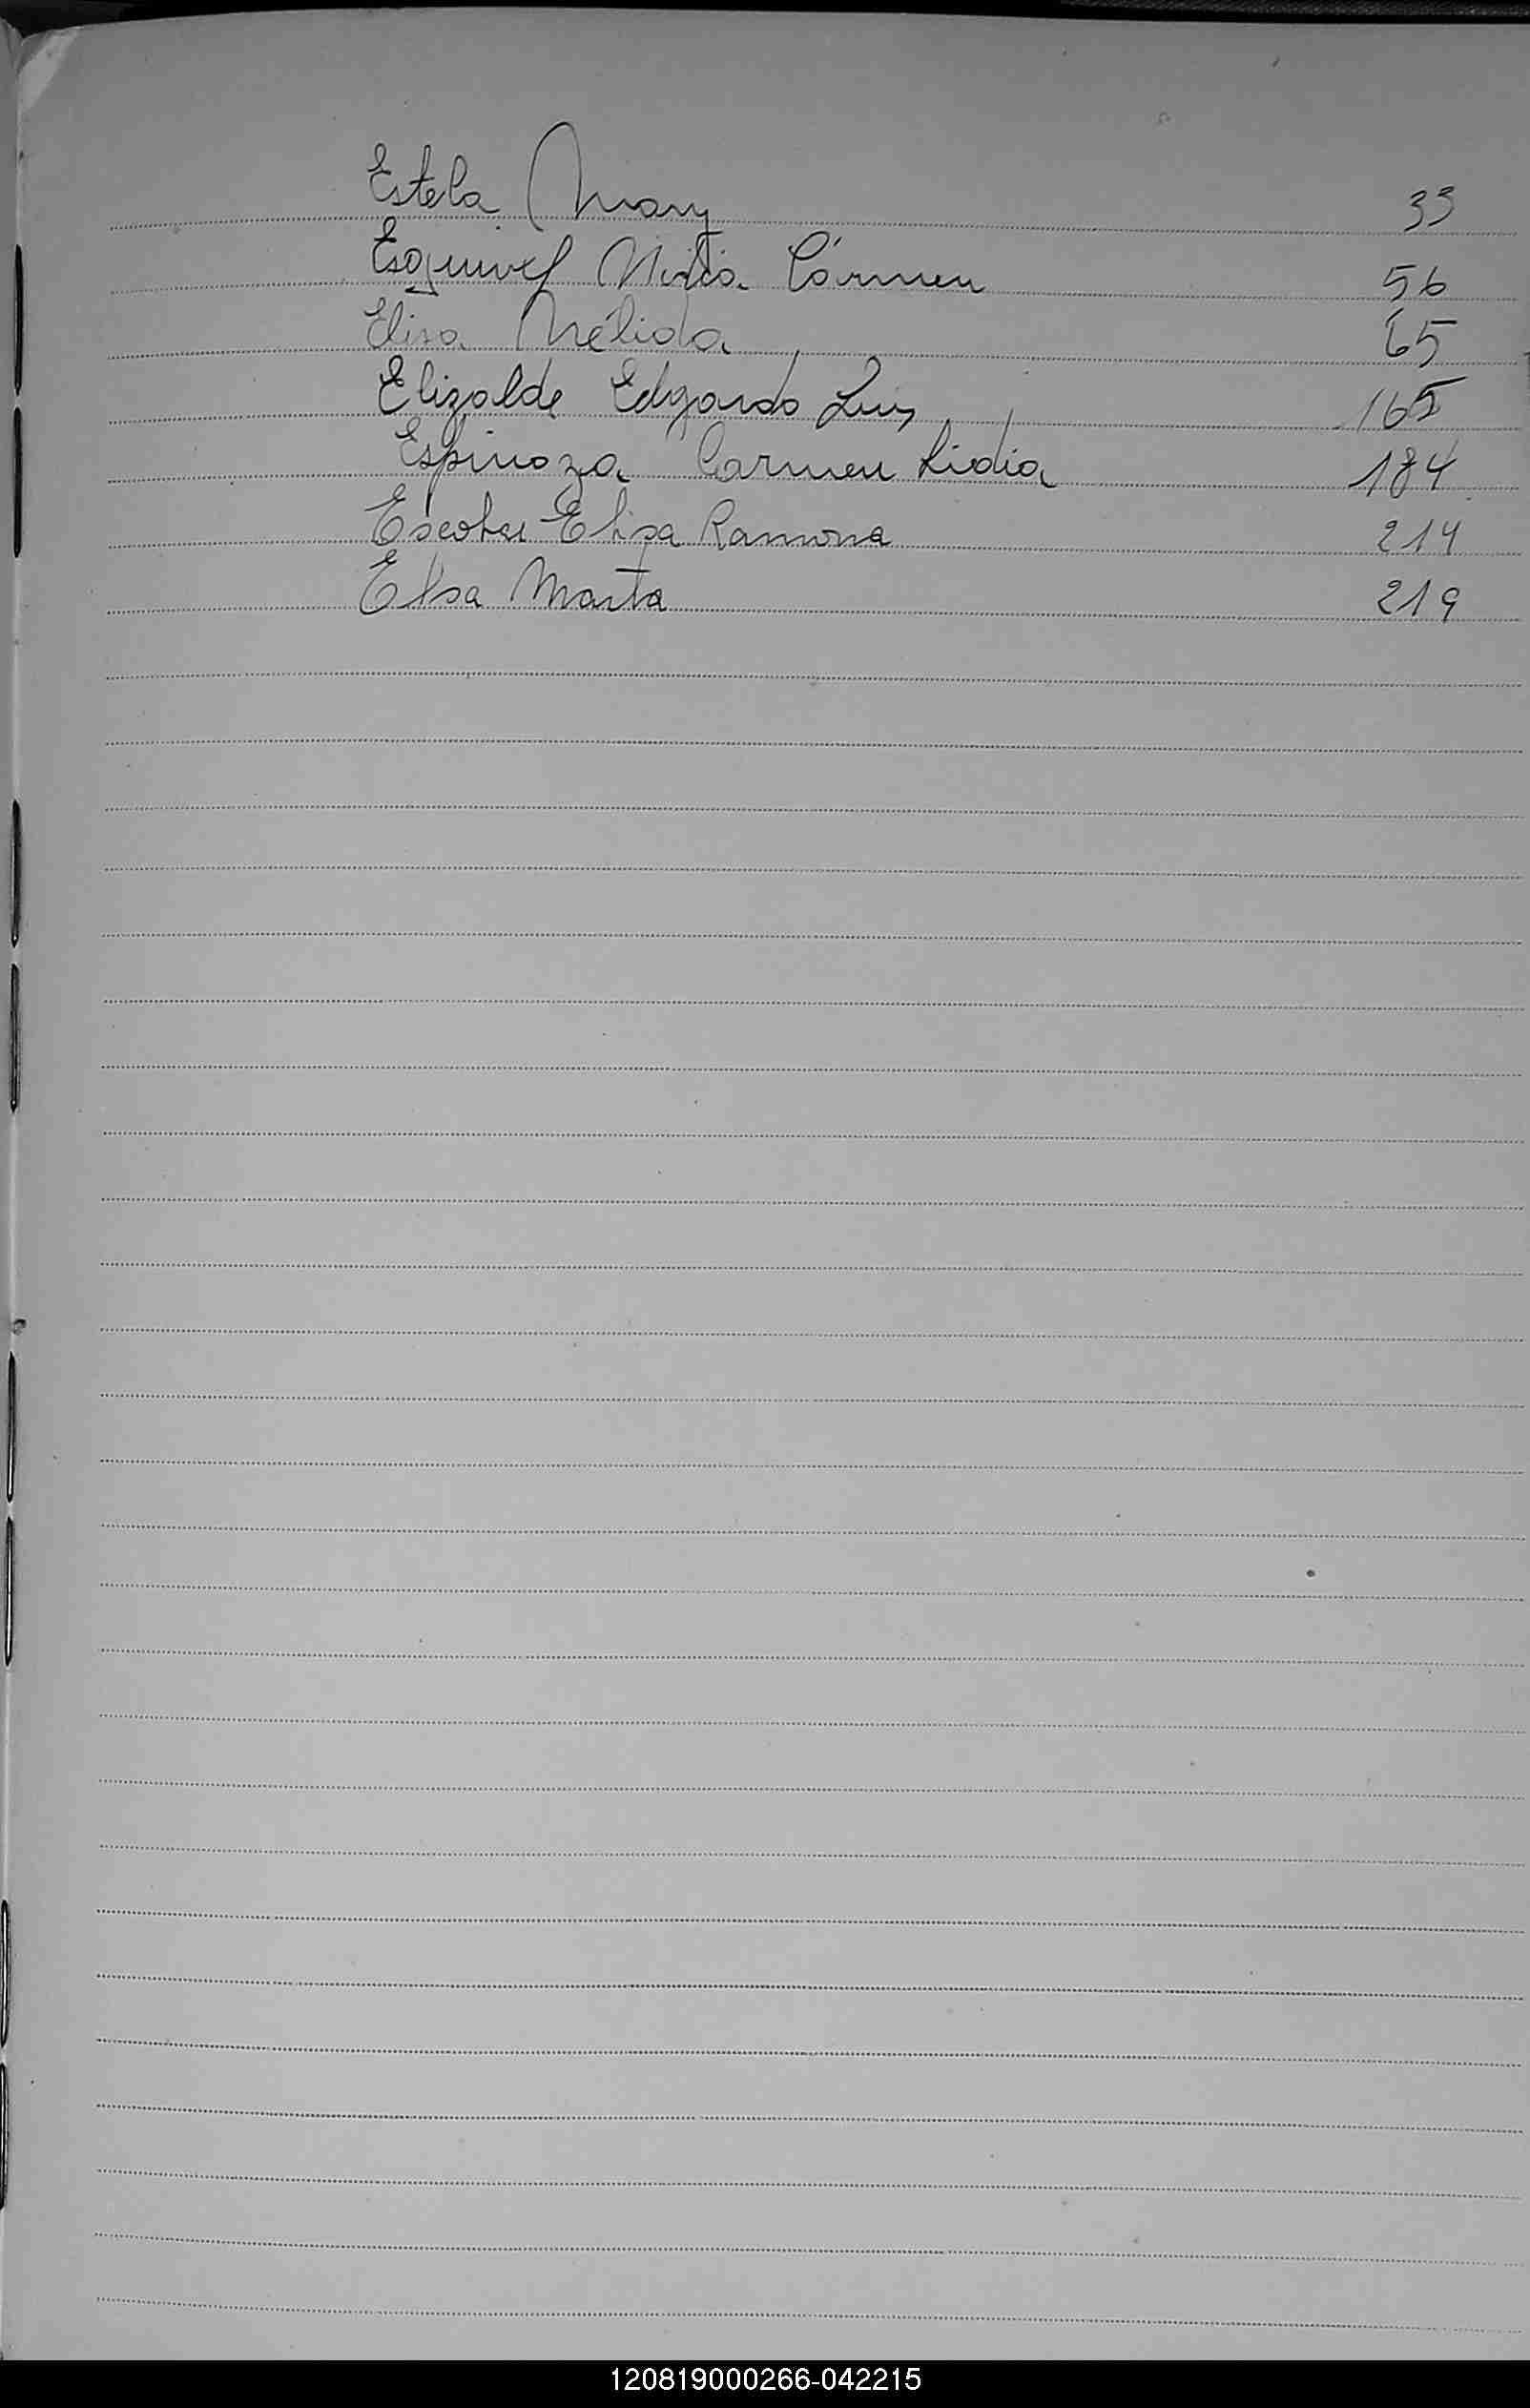 Estela Mary 33
Esquivel Mirta Cármen 56
Elisa Nélida 65
Elizalde Edgardo Luis 165
Espinoza Carmen Lidia 184
Escobar Elisa Ramona 214
Elsa Marta 219
120819000266-042215